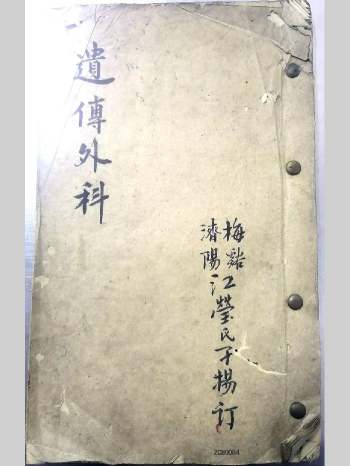 遺傳外科
梅谿
濟陽
江瑩氏子楊訂
ZCB0084